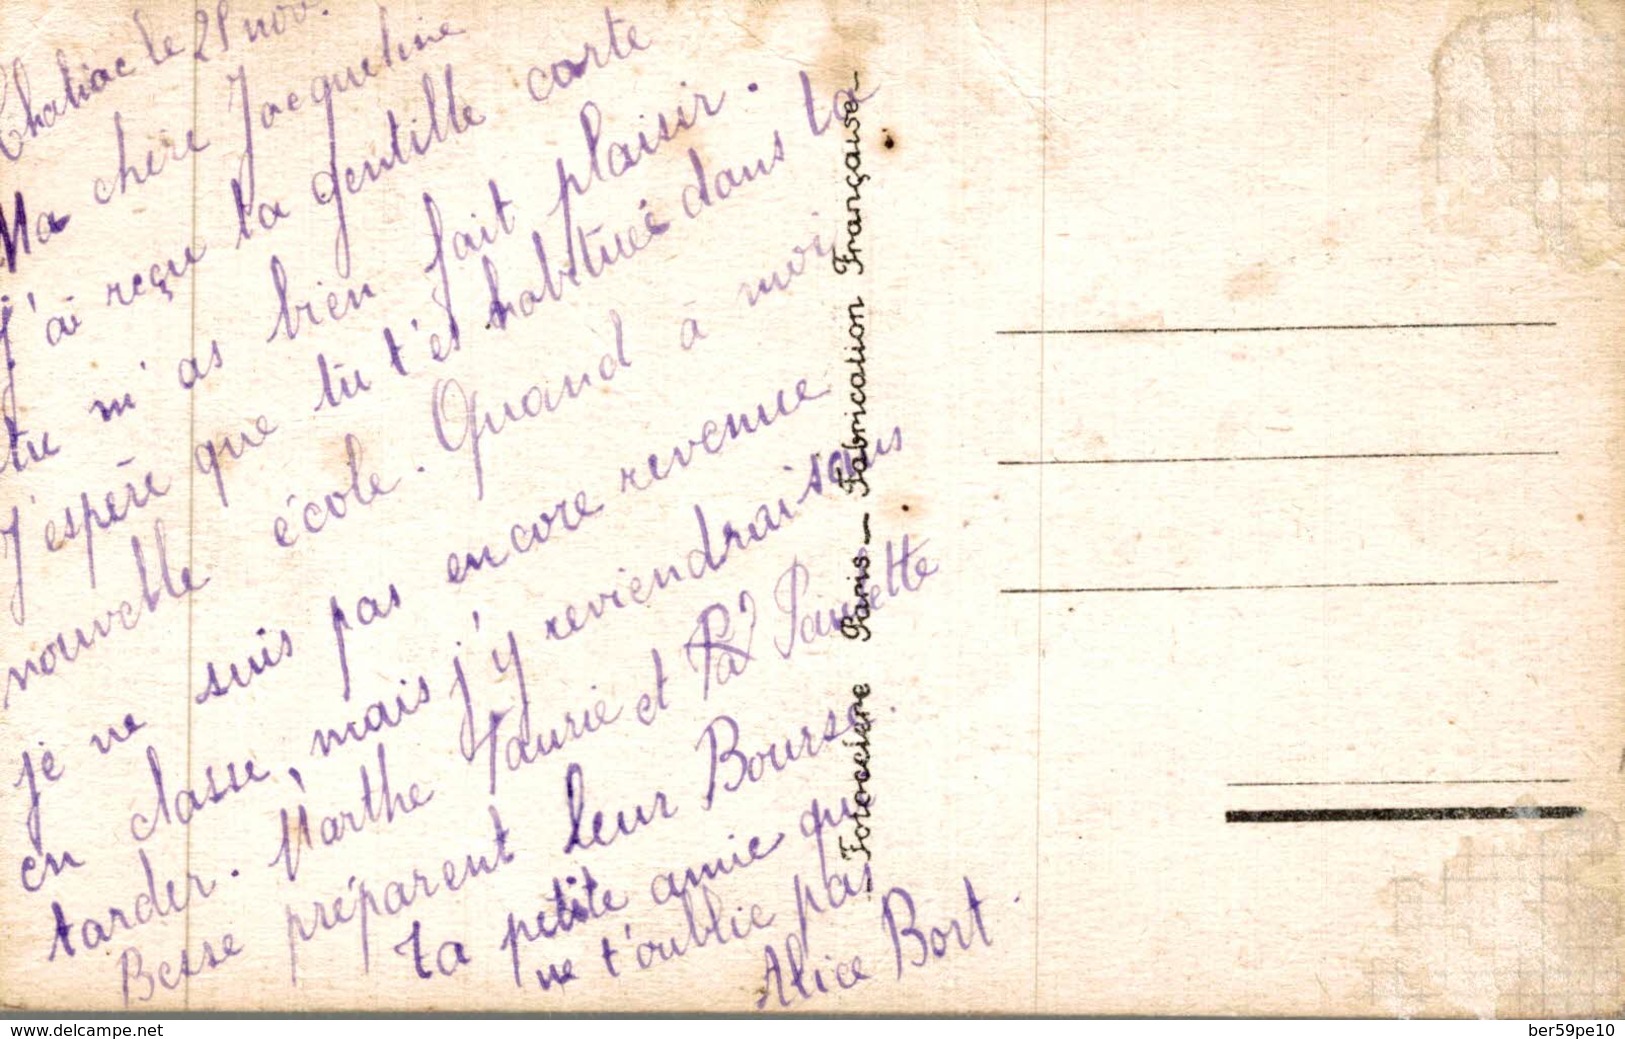 le 21 nov.
Ma chère Jacqueline
J'ai reçu ta gentille carte
tu m'as bien fait plaisir.
J'espère que tu t'es habituée dans ta
nouvelle école. Quand à moi
je ne suis pas encore revenue
en classe, mais j'y reviendrai sans
tarder. Marthe Taurie et Paulette
Besse préparent leur Bourse.
Ta petite amie qui
ne t'oublie pas
Alice Bort.
Fotocière Paris — Fabrication Française
www.delcampe.net
ber59pe10